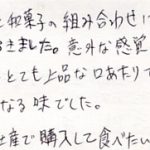 と和菓子の組み合わせに
きました。意外な感覚
とても上品な口あたりで
なる味でした。
産で購入して食べたい